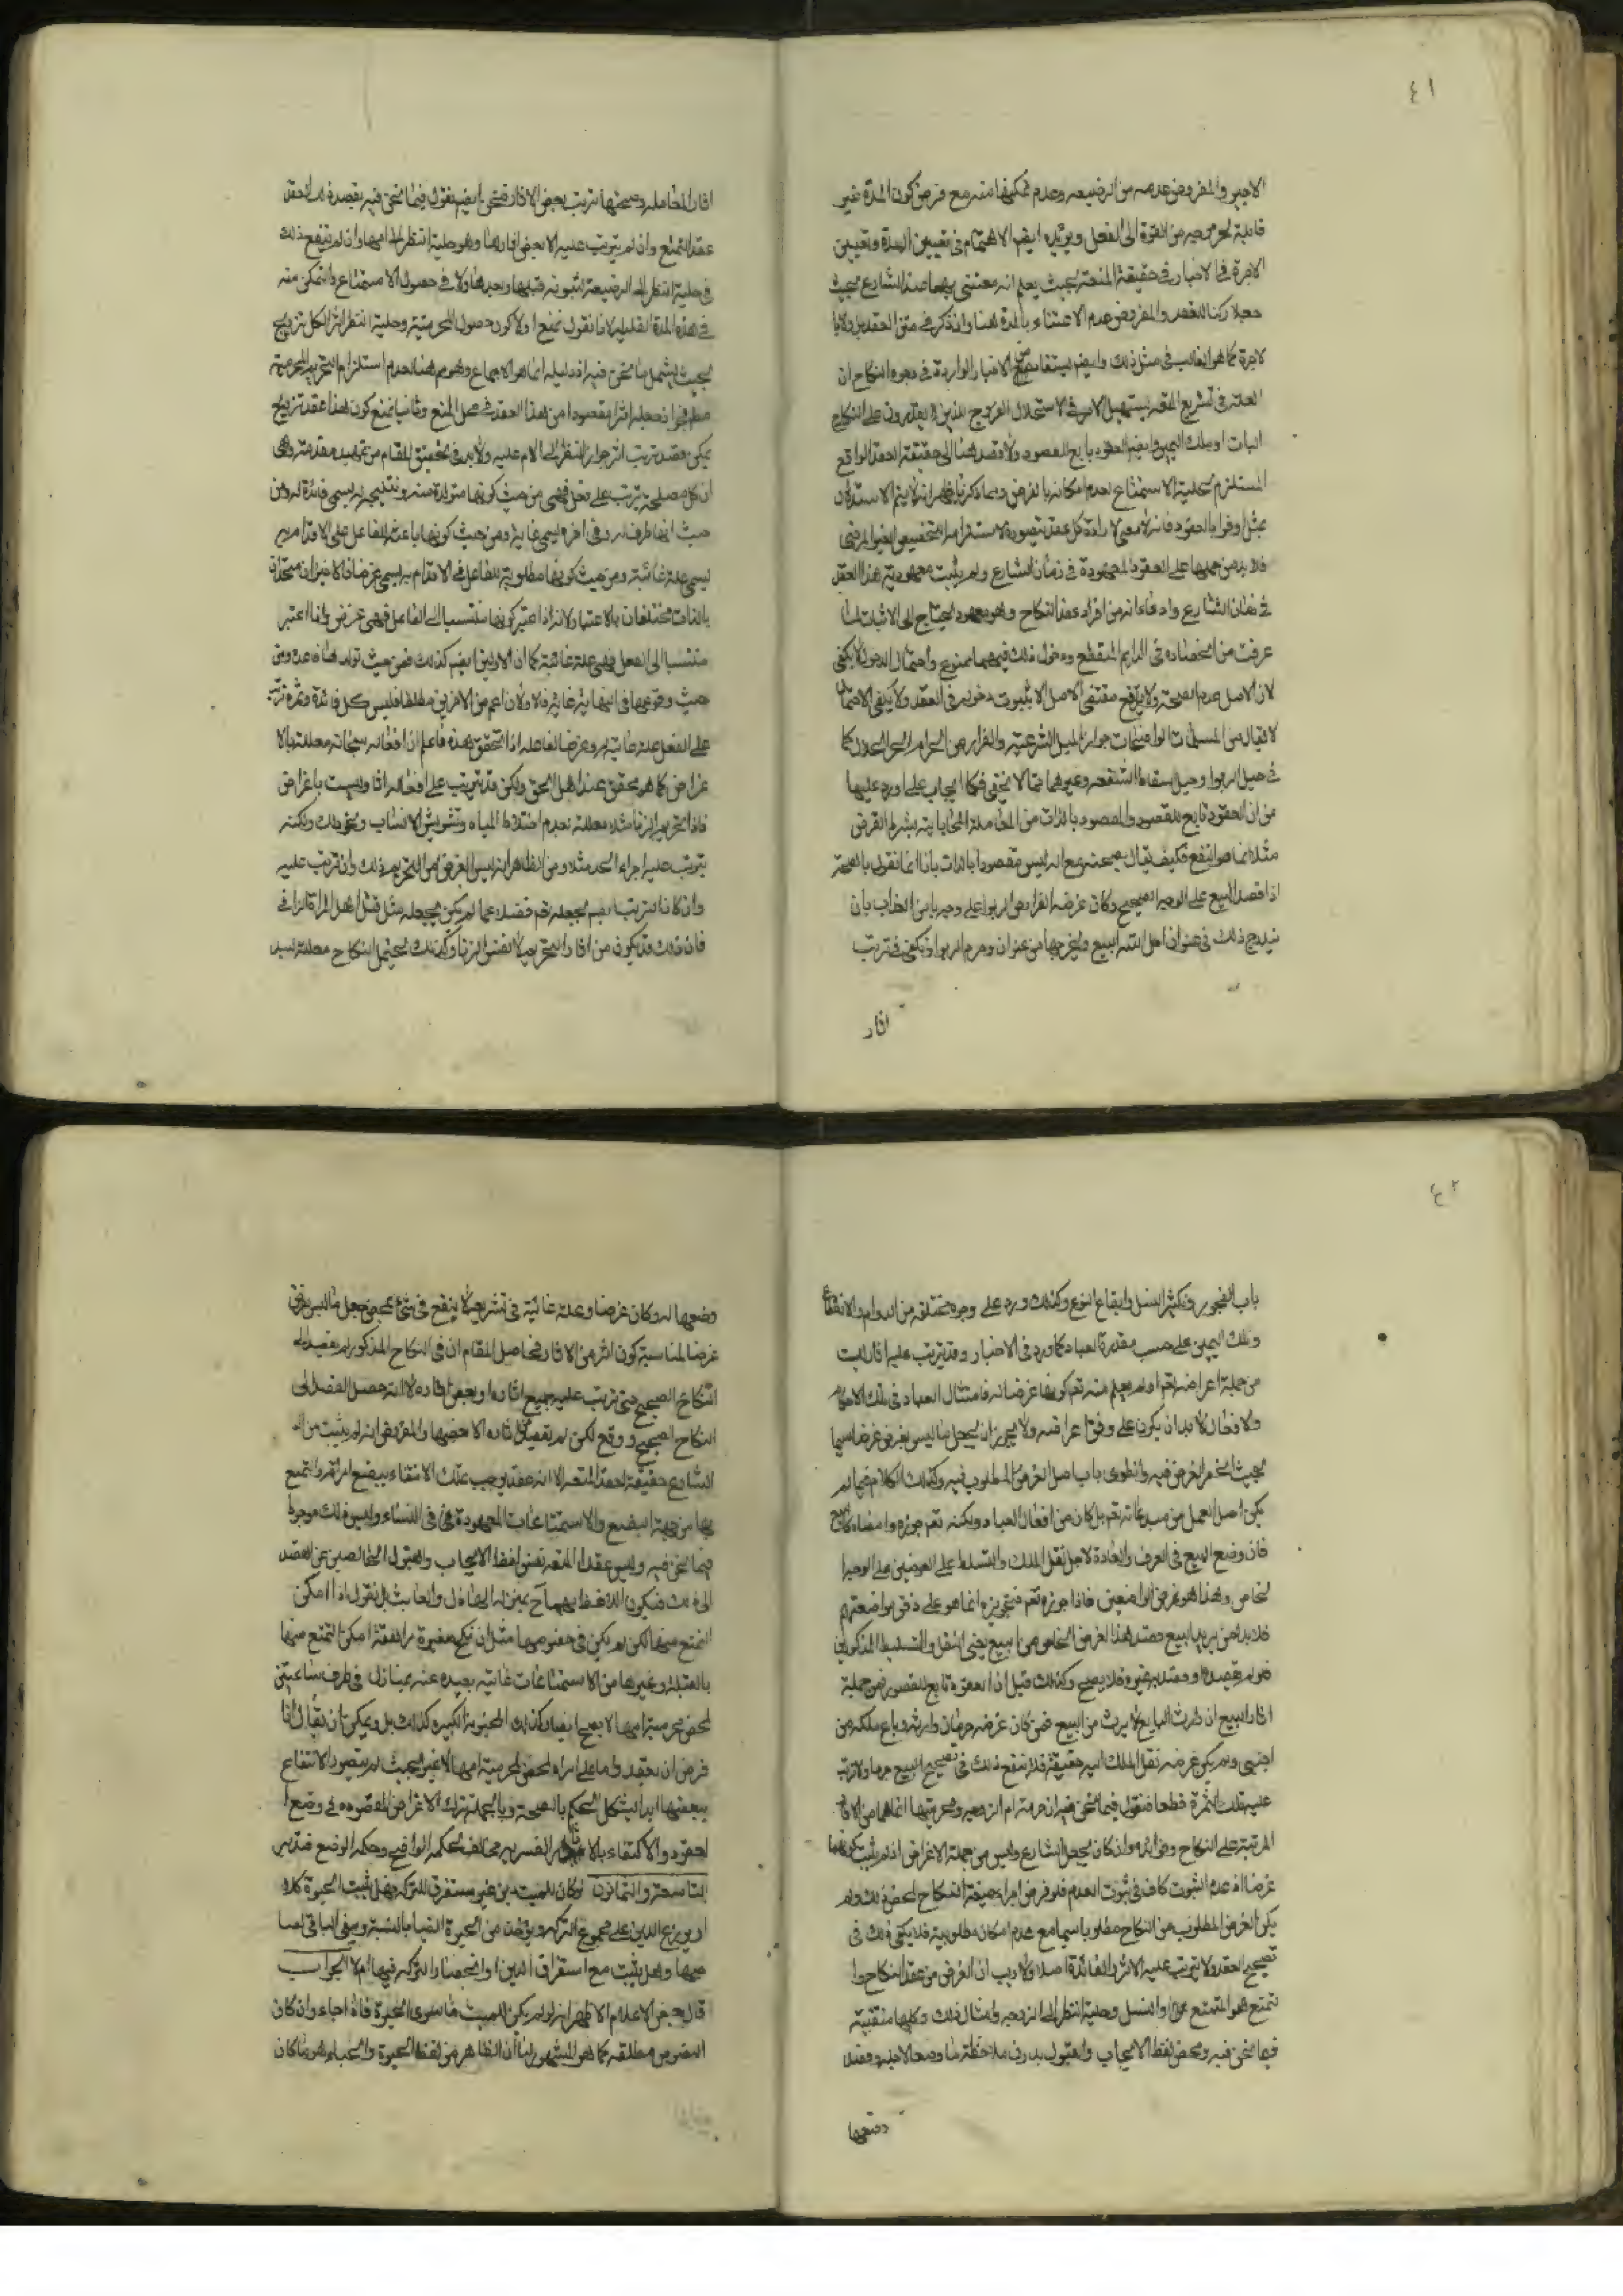 ٤١
الاجير والمفروض عدمه من الرضيعه وعدم تمكينها منه مع فرض كون المدة غير
قابلة لخروجه من القوة الى الفعل ويؤيده ايضم الاهتمام في تعيين المدة وتعيين
الاجرة في الاخبار في حقيقة المتعة بحيث يعلم انه معتنى بهما عند الشارع بحيث
جعلا ركنا للعقد والمفروض عدم الاعتناء بالمدة هنا وان ذكر في متن العقد بل ولا با
لاجرة كما هو الغالب في مثل ذلك وايضم يستفاد من الاخبار الواردة في وجوه النكاح ان
العلة في تشريع المتعه تسهيل الامر في الاستحلال الفروج للذين لا يقدرون على النكاح
البات او ملك اليمين وايضم العقود تابع للقصود ولا قصد هنا الى حقيقة العقد الواقع
المستلزم لحلية الاستمتاع لعدم امكانه بالفرض وبما ذكرنا يظهر انه لا يتم الاستدلال
بمثل اوفوا بالعقود فانه لا معنى لارادة كل عقد يتصوره لاستلزامه التخصيص الغير المرضي
فلا بد من حملها على العقود المعهودة في زمان الشارع ولم يثبت معهودية هذا العقد
في زمان الشارع وادعاء انه من افراد عقد النكاح وهو معهود يحتاج الى الاثبات لما
عرفت من انحصاره في الدايم والمنقطع ودخول ذلك فيهما ممنوع واحتمال الدخول لا يكفي
لان الاصل عدم الصحة ولا يرفع مقتضى الاصل الا بثبوت دخوله في العقد ولا يكفي الاحتمال
لا يقال من المسلمات الواضحات جواز الحيل الشرعيه والفرار من الحرام الى الحلال كما
في حيل الربوا وحيل اسقاط الشفعه وغيرهما مما لا يخفى فكما يجاب على ما ورد عليها
من ان العقود تابع للقصود والمقصود بالذات من المعاملة المحاباتيه بشرط القرض
مثلا انما هو النفع فكيف يقال بصحته مع انه ليس مقصودا بالذات بانا انما نقول بالصحة
اذا قصد البيع على الوجه الصحيح وكان غرضه الفرار من الربوا على وجه يابى العقاب بان
يندرج ذلك في عنوان احل الله البيع ويخرجها من عنوان وحرم الربوا ويكفي في ترتب
اثار
اثار المعامله وصحتها ترتب بعض الاثار فنحن ايضم نقول فيما نحن فيه بقصد ذلك العقد
عقد التمتع وان لم يترتب عليه الا بعض اثارها وهو حلية النظر الى امها وان لم ينفع ذلك
في حلية النظر الى الرضيعة لثبوته قبلها وبعدها ولا في حصول الاستمتاع والتمكن منه
في هذه المدة القليله لانا نقول نمنع اولا كون حصول المحرمية وحلية النظر اثر الكل تزويج
بحيث يشمل ما نحن فيه اذ دليله انما هو الاجماع وهو هنا لعدم استلزام التحريم المحرمية
مط في اذ جعله اثرا مقصودا من هذا العقد في محل المنع وثانيا نمنع كون هذا عقد تزويج
يمكن قصد ترتب اثر جواز النظر الى الام عليه ولا بد في تحقيق المقام من تمهيد مقدمة وهي
ان كل مصلحة يترتب على فعل فهي من حيث كونها متولدة منه ونتيجة له يسمى فائدة له ومن
حيث انها طرف له وفي اخره يسمى غاية له ومن حيث كونها باعثه للفاعل على الاقدام به
يسمى علة غائية ومن حيث كونها مطلوبة للفاعل في الاقدام به يسمى غرضا فالاخيران متحدان
بالذات مختلفان بالاعتبار لانه اذا اعتبر كونها منتسبا الى الفاعل فهي غرض واذا اعتبر
منتسبا الى الفعل فهي علة غائية كما ان الاولين ايضم كذلك فمن حيث تولدها فائدة ومن
حيث وقوعها في انتهائه غاية والاولان اعم من الاخرين مطلقا فليس كل فائدة وثمرة ترتب
على الفعل علة غائية له وغرضا لفاعله اذا تحقق هذه فاعلم ان افعاله سبحانه معللة بالا
غراض كما هو محقق عند اهل الحق ولكن قد يترتب على افعاله اثار وليست باغراض
فاذا تحريم الزنا مثلا معللة لعدم اختلاط المياه وتشويش الانساب ونحو ذلك ولكنه
يترتب عليه اجراء الحد مثلا ومن الظاهر انه ليس الغرض من التحريم ذلك وان ترتب عليه
وان كان الترتب ايضم بجعله تعم فضلا عما لم يكن بجعله مثل قتل اهل المراة الزاني
فان ذلك قد يكون من اثار التحريم لا نفس الزنا وكذلك تحليل النكاح معللة لسد
٤٢
باب الفجور وتكثير النسل وابقاء النوع وكذلك ورد على وجوه مختلفه من الدوام والانقطاع
وملك اليمين على حسب مقدرة العباد كما ورد في الاخبار وقد يترتب عليه اثار ليست
من جملة اغراضه تعم او لم يعلم منه تعم كونها غرضا له فامتثال العباد في تلك الاحكام
والافعال لا بد ان يكون على وفق اغراضه ولا يجوز ان يجعل ما ليس بغرض غرضا سيما
بحيث انحصر الغرض فيه وانطوى باب اصل الغرض المطلوب فيه وكذلك الكلام فيما لم
يكن اصل العمل من مبدعاته تعم بل كان من افعال العباد ولكنه تعم جوزه وامضاه كالبيع
فان وضع البيع في العرف والعادة لاجل نقل الملك والتسلط على العوضين على الوجه ا
لخاص وهذا هو غرض الواضعين فاذا جوزه تعم فتجويزه انما هو على وفق مواضعتهم
فلا بد لمن يريد البيع قصد هذا الغرض الخاص من البيع يعني النقل والتسليط المذكورين
فلو لم يقصده او قصد به غيره فلا يصح وكذلك قيل ان العقود تابع للقصود فمن جملة
اثار البيع ان وارث البايع لا يرث من المبيع فمن كان غرضه حرمان وارثه وباع ملكه من
اجنبي ولم يكن غرضه نقل الملك اليه حقيقة فلا ينفع ذلك في تصحيح البيع مرما ولا ترتب
عليه تلك الثمرة قطعا فنقول فيما نحن فيه ان حرمة ام الزوجه ومحرميتها انما هما من الاثار
المرتبة على النكاح وفوائده وان كان بجعل الشارع وليس من جملة الاغراض اذ لم يثبت كونهما
غرضا اذ عدم الثبوت كاف في ثبوت العدم فلو فرض اجراء صيغة النكاح لمحض ذلك ولم
يكن الغرض المطلوب من النكاح مطلوبا سيما مع عدم امكان مطلوبيته فلا يكفي ذلك في
تصحيح العقد ولا يترتب عليه الاثر والفائدة اصلا ولا ريب ان الغرض من عقد النكاح وا
لتمتع هو التمتع والنسل وحلية النظر الى الزوجه وامثال ذلك وكلها منتفية
فيما نحن فيه ومحض لفظ الايجاب والقبول بدون ملاحظة ما وضعا لاجله وقصد
وضعها
وضعها له وكان غرضا وعلة غائية في تشريعه لا ينفع في شئ بمحض جعل ما ليس بغرض
غرضا لمناسبة كون اثر من الاثار فحاصل المقام ان في النكاح المذكور لم يقصد الى
النكاح الصحيح حتى ترتب عليه جميع اثاره او بعض اثاره لا انه حصل القصد الى
النكاح الصحيح ووقع لكن لم يقصد من اثاره الا بعضها والمفروض انه لم يثبت من الـ
الشارع حقيقة لعقد المتعه الا انه عقد يوجب تملك الانتفاع ببضع امراة والتمتع
بها من جهة البضع والاستمتاعات المعهودة في النساء وليس ذلك موجودا
فيما نحن فيه وليس عقد المتعه نفس لفظ الايجاب والقبول الخاليين عن القصد
الى ذلك فيكون اللافظ بهما ح بمنزلة الهازل والعابث بل نقول اذا امكن
التمتع منها لكن لم يكن في حضورهما مثل ان نكح صغيرة مراهقة امكن التمتع منها
بالقبلة وغيرها من الاستمتاعات غائبة بعيده عنه بمنازل في طرف ساعتين
لمحض محرمية امها لا يصح ايضا وكذلك المجنونة الكبيره كذلك بل ويمكن ان نقول اذا
فرض ان يعقد دواما على امراة لمحض محرمية امها لا غير بحيث لم يقصد الانتفاع
ببعضها ابدا يشكل الحكم بالصحة وبالجمله ترك الاغراض المقصوده في وضع ا
لعقود والاكتفاء بالاثار القسريه مخالف لحكمه الواضع وحكمه الوضع فتدبر
التاسعة والثمانون لو كان للميت دين غير مستغرق للتركه فهل يثبت الحبوة كلا
او يوزع الدين على مجموع التركه ويؤخذ من الحبوة ايضا بالنسبة ويبقى الباقي لصا
حبها وهل يثبت مع استغراق الدين او انحصار التركه فيها ام لا الجواب
قال بعض الاعلام الاظهر انه لو لم يكن للميت ما سوى الحبوة فلا احباء وان كان
النصوص مطلقه كما هو المشهور لنا ان الظاهر من لفظ الحبوة والحباء هو ما كان